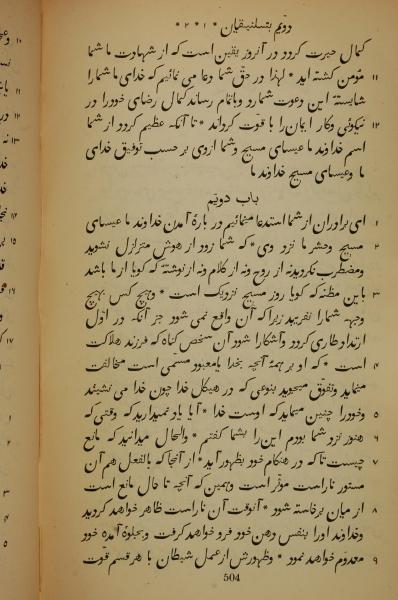 دویم بتسلنیقیان * ۱ * ۲ *
کمال حیرت گردد در آنروز یقین است که از شهادت ما شما
۱۱ مؤمن گشته اید * لهذا در حق شما دعا می نمائیم که خدای ما شما را
شایستهٔ این دعوت شمارد و باتمام رساند کمال رضای خود را در
۱۲ نیکوئی و کار ایمان را با قوت گرداند * تا آنکه عظیم گردد از شما
اسم خداوند ما عیسای مسیح و شما از وی بر حسب توفیق خدای
ما و عیسای مسیح خداوند ما
باب دویم
۱ ای برادران از شما استدعا مینمائیم در بارهٔ آمدن خداوند ما عیسای
۲ مسیح و حشر ما نزد وی * که شما زود از هوش متزلزل نشوید
و مضطرب نگردید نه از روح و نه از کلام و نه از نوشتهٔ که گویا از ما باشد
۳ باین مظنه که گویا روز مسیح نزدیک است * و هیچ کس بهیچ
وجهه شما را نفریبد زیرا که آن واقع نمی شود جز آنکه در اول
ارتداد طاری گردد و آشکارا شود آن شخص گناه که فرزند هلاکت
۴ است * که او بر همهٔ آنچه بخدا یا معبود مسمی است مخالفت
مینماید و تفوق میجوید بنوعی که در هیکل خدا چون خدا می نشیند
۵ و خود را چنین مینماید که اوست خدا * آیا یاد نمیدارید که وقتی که
۶ هنوز نزد شما بودم این را بشما گفتم * و الحال میدانید که مانع
۷ چیست تا که در هنگام خود بظهور آید * از آنجا که بالفعل هم آن
مستور ناراست مؤثر است و همین که آنچه تا حال مانع است
۸ از میان برخاسته شود * آنوقت آن ناراست ظاهر خواهد گردید
و خداوند او را بنفس دهن خود فرو خواهد گرفت و بجلوهٔ آمدن خود
۹ معدوم خواهد نمود * و ظهورش از عمل شیطان با هر قسم قوت
504